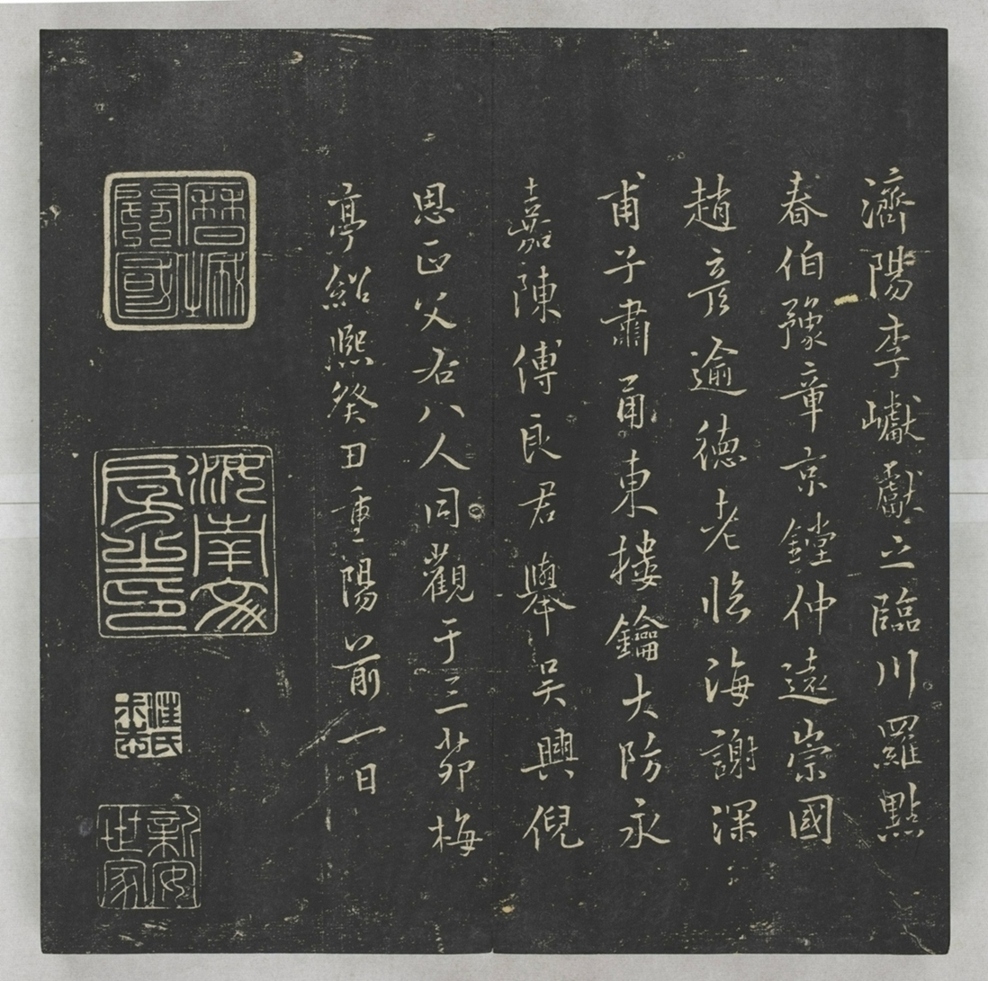 濟陽李巘獻之臨川羅點
春伯豫章京鏜仲遠崇國
趙彥逾德老臨海謝深
甫子肅甬東樓鑰大防永
嘉陳傅良君舉吳興倪
思正父右八人同觀于三茆梅
亭紹熙癸丑重陽前一日
新安
世家